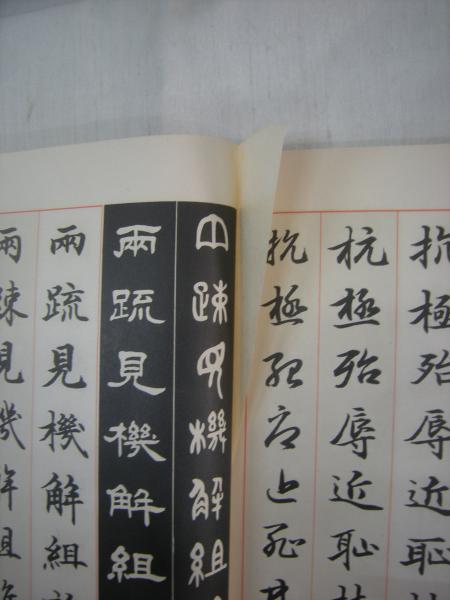 抗極殆辱近耻
抗極殆辱近耻
抗極殆辱近耻
兩疎見機解組
兩疏見機解組
兩疏見機解組
兩疎見機解組